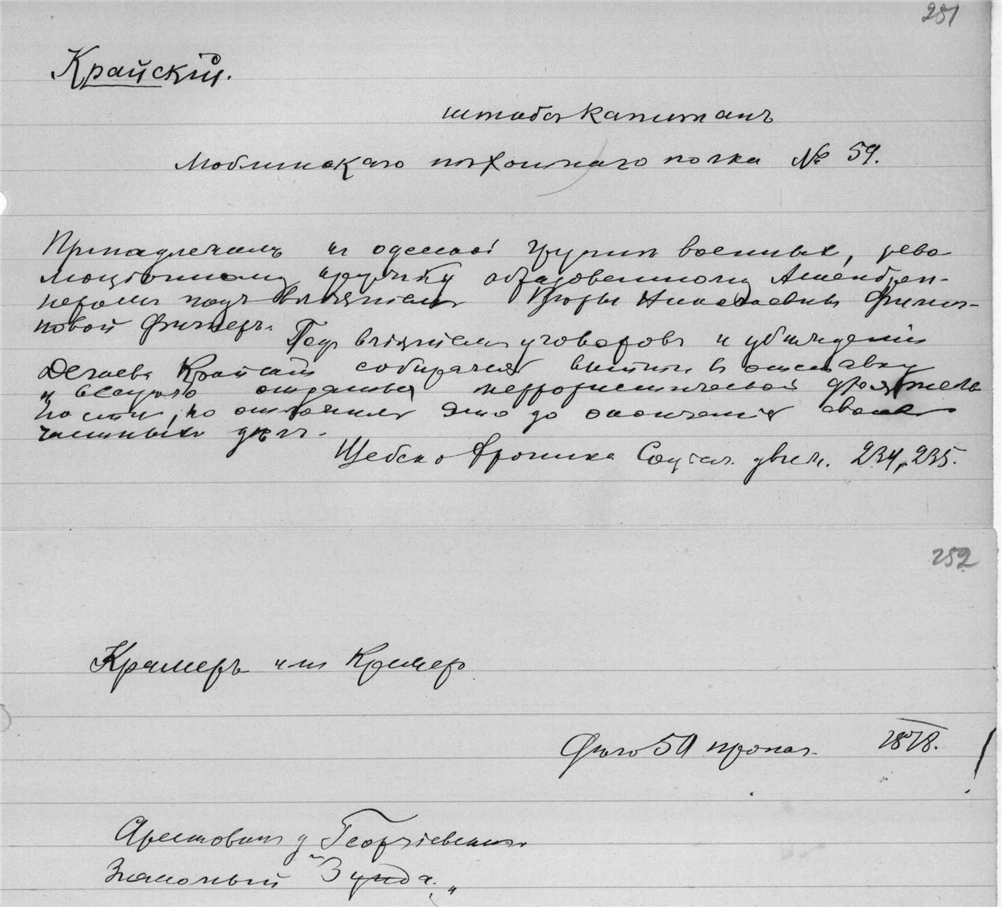 251
Крайскій.
штабсъ капитанъ
Люблинскаго пѣхотнаго полка № 59.
Принадлежалъ къ одесской группѣ военныхъ, рево-
люціонному кружку образованному Ашенбрен-
неромъ подъ вліяніемъ Вѣры Николаевны Филип-
повой Фигнеръ.
Подъ вліяніемъ уговоровъ и убѣжденій
Дегаева Крайскій собирался выйти въ отставку
и всецѣло отдаться террористической дѣятель
ности, но отложилъ это до окончанія своихъ
частныхъ дѣлъ.
Шебеко Хроника Соціал. движ. 234, 235.
252
Крамеръ или Кремеръ
59 1878.
Арестованъ у Георгіевскаго
Знакомый "Зунда"